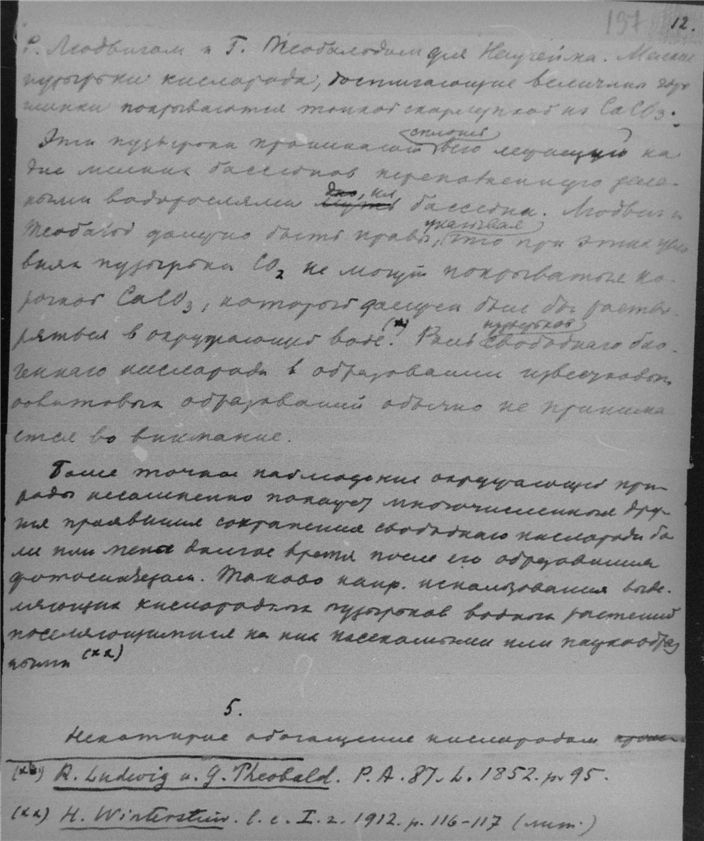 197 12.
Р. Людвигом и Г. Теобальдом для Наугейма. Мелкие
пузырьки кислорода, достигающие величины
покрываются тонкой скорлупкой из CaCO3.
Эти пузырьки проникают сплошь всю лежащую на
дне мелких бассейнов переполненную зеле-
ными водорослями дно, ил бассейна. Людвиг и
Теобальд должно быть правы, указывая, что при этих усло
виях пузырьки CO2 не могут покрываться ко-
ркой CaCO3, который должен был бы раство-
ряться в окружающей воде.(x) Роль пузырьков свободнаго био-
геннаго кислорода в образовании известковых
оолитовых образований обычно не принима-
ется во внимание.
Более точное наблюдение окружающей при-
роды несомненно покажет многочисленныя дру-
гия проявления сохранения свободнаго кислорода бо-
ли или менее долгое время после его образования
фотосинтезом. Таково напр. использования выде-
ляющих кислородных пузырьков водных растений
поселяющимися на них насекомыми или паукообраз
ными (xx)
5.
Некоторые обогащение кислородом
(x) R. Ludwig u. G. Theobald. P. A. 87. L. 1852. p. 95.
(xx) H. Winterstein. l. c. I. 2. 1912. p. 116-117 (лит.)